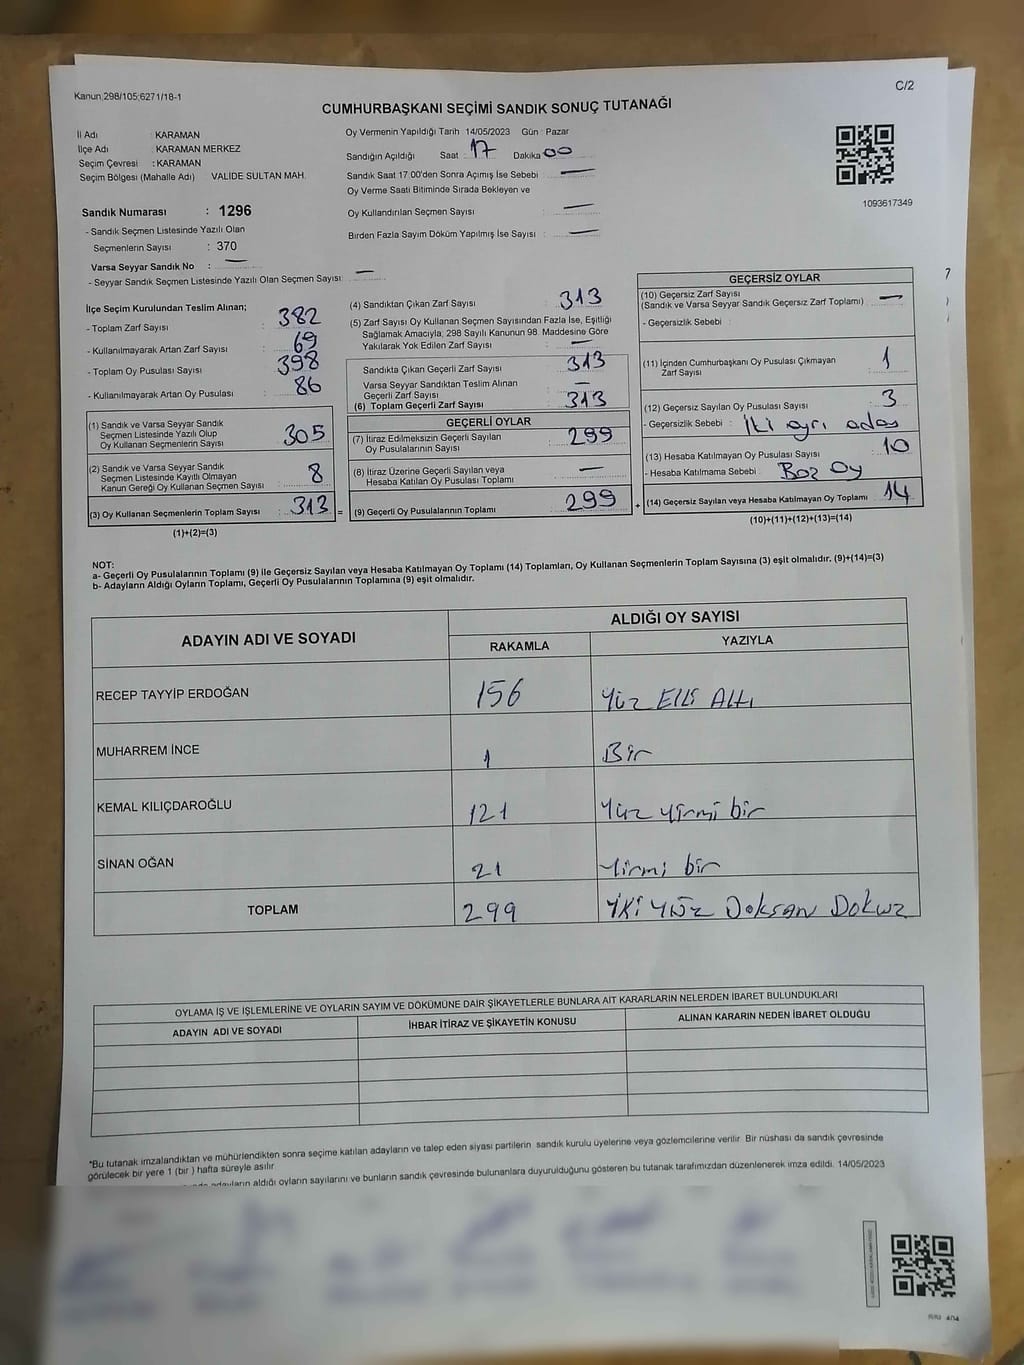 Kanun;298/105;6271/18-1
C/2
CUMHURBAŞKANI SEÇİMİ SANDIK SONUÇ TUTANAĞI
İl Adı : KARAMAN
İlçe Adı : KARAMAN MERKEZ
Seçim Çevresi : KARAMAN
Seçim Bölgesi (Mahalle Adı) VALİDE SULTAN MAH.
Sandık Numarası : 1296
- Sandık Seçmen Listesinde Yazılı Olan
Seçmenlerin Sayısı : 370
Varsa Seyyar Sandık No : —
- Seyyar Sandık Seçmen Listesinde Yazılı Olan Seçmen Sayısı: —
Oy Vermenin Yapıldığı Tarih 14/05/2023 Gün : Pazar
Sandığın Açıldığı Saat : 17 Dakika 00
Sandık Saat 17:00'den Sonra Açımış İse Sebebi : —
Oy Verme Saati Bitiminde Sırada Bekleyen ve
Oy Kullandırılan Seçmen Sayısı : —
Birden Fazla Sayım Döküm Yapılmış İse Sayısı : —
1093617349
İlçe Seçim Kurulundan Teslim Alınan;
- Toplam Zarf Sayısı : 382
- Kullanılmayarak Artan Zarf Sayısı : 69
- Toplam Oy Pusulası Sayısı : 398
- Kullanılmayarak Artan Oy Pusulası : 86
(1) Sandık ve Varsa Seyyar Sandık
Seçmen Listesinde Yazılı Olup
Oy Kullanan Seçmenlerin Sayısı : 305
(2) Sandık ve Varsa Seyyar Sandık
Seçmen Listesinde Kayıtlı Olmayan
Kanun Gereği Oy Kullanan Seçmen Sayısı : 8
(3) Oy Kullanan Seçmenlerin Toplam Sayısı : 313 =
(1)+(2)=(3)
(4) Sandıktan Çıkan Zarf Sayısı : 313
(5) Zarf Sayısı Oy Kullanan Seçmen Sayısından Fazla İse, Eşitliği
Sağlamak Amacıyla; 298 Sayılı Kanunun 98. Maddesine Göre
Yakılarak Yok Edilen Zarf Sayısı : —
Sandıkta Çıkan Geçerli Zarf Sayısı : 313
Varsa Seyyar Sandıktan Teslim Alınan
Geçerli Zarf Sayısı : —
(6) Toplam Geçerli Zarf Sayısı : 313
GEÇERLİ OYLAR
(7) İtiraz Edilmeksizin Geçerli Sayılan
Oy Pusulasının Sayısı : 299
(8) İtiraz Üzerine Geçerli Sayılan veya
Hesaba Katılan Oy Pusulası Toplamı : —
(9) Geçerli Oy Pusulalarının Toplamı : 299 +
GEÇERSİZ OYLAR
(10) Geçersiz Zarf Sayısı
(Sandık ve Varsa Seyyar Sandık Geçersiz Zarf Toplamı) : —
- Geçersizlik Sebebi :
(11) İçinden Cumhurbaşkanı Oy Pusulası Çıkmayan
Zarf Sayısı : 1
(12) Geçersiz Sayılan Oy Pusulası Sayısı : 3
- Geçersizlik Sebebi : İki ayrı aday
(13) Hesaba Katılmayan Oy Pusulası Sayısı : 10
- Hesaba Katılmama Sebebi : Boz Oy
(14) Geçersiz Sayılan veya Hesaba Katılmayan Oy Toplamı : 14
(10)+(11)+(12)+(13)=(14)
NOT:
a- Geçerli Oy Pusulalarının Toplamı (9) ile Geçersiz Sayılan veya Hesaba Katılmayan Oy Toplamı (14) Toplamları, Oy Kullanan Seçmenlerin Toplam Sayısına (3) eşit olmalıdır. (9)+(14)=(3)
b- Adayların Aldığı Oyların Toplamı, Geçerli Oy Pusulalarının Toplamına (9) eşit olmalıdır.
ADAYIN ADI VE SOYADI
ALDIĞI OY SAYISI
RAKAMLA YAZIYLA
RECEP TAYYİP ERDOĞAN 156 Yüz Elli Altı
MUHARREM İNCE 1 Bir
KEMAL KILIÇDAROĞLU 121 Yüz yirmi bir
SİNAN OĞAN 21 Yirmi bir
TOPLAM 299 İki Yüz Doksan Dokuz
OYLAMA İŞ VE İŞLEMLERİNE VE OYLARIN SAYIM VE DÖKÜMÜNE DAİR ŞİKAYETLERLE BUNLARA AİT KARARLARIN NELERDEN İBARET BULUNDUKLARI
ADAYIN ADI VE SOYADI İHBAR İTİRAZ VE ŞİKAYETİN KONUSU ALINAN KARARIN NEDEN İBARET OLDUĞU
*Bu tutanak imzalandıktan ve mühürlendikten sonra seçime katılan adayların ve talep eden siyasi partilerin sandık kurulu üyelerine veya gözlemcilerine verilir. Bir nüshası da sandık çevresinde
görülecek bir yere 1 (bir ) hafta süreyle asılır.
adayların aldığı oyların sayılarını ve bunların sandık çevresinde bulunanlara duyurulduğunu gösteren bu tutanak tarafımızdan düzenlenerek imza edildi. 14/05/2023